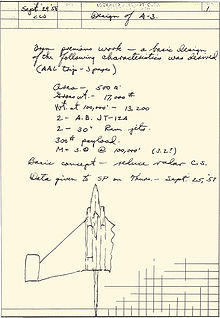 Sept. 29, '58
Design of A-3.
1
From previous work - a basic design
of the following characteristics was derived
(AAL trip - 3 pages)
Area - 500 #
Gross wt. - 17,000 #
Wt. at 100,000' - 13,200
2 - A.B. JT-12A
2 - 30" Ram jets.
300 # payload.
M = 3.0 @ 100,000' (3.2!)
Basic concept - reduce radar C.S.
Data given to SP on Thurs. - Sept 25, '58